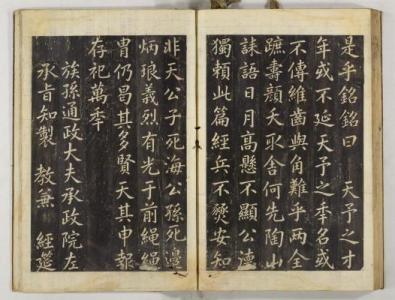 是乎銘銘曰 天予之才
年或不延天予之秊名或
不傳維齒與角難乎兩全
蹠壽顔夭取舍何先陶山
誄語日月高懸不顯公德
獨賴此篇經兵不燹安知
非天公子死海公孫死邊
炳琅義烈有光于前繩繩
冑仍昌其多賢天其申報
存祀萬秊
族孫通政大夫承政院左
承旨知製 教兼 經筵